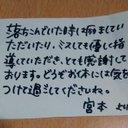 落ちこんでいた時に励ましてい
ただいたり、ミスしても優しく指
導していただき、とても感謝して
おります。どうぞお体には気を
つけて過ごしてくださいね。
宮本 より